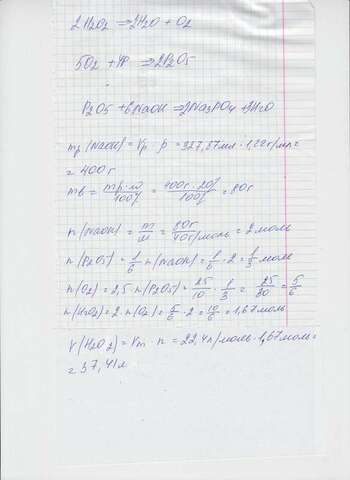 2H2O2 ⇒ 2H2O + O2
5O2 + 4P ⇒ 2P2O5
P2O5 + 6NaOH ⇒ 2Na3PO4 + 3H2O
mp (NaOH) = Vp · ρ = 327,87мл · 1,22г/мл =
= 400г
mв = mp·ω/100% = 400г·20%/100% = 80г
n(NaOH) = m/M = 80г/40г/моль = 2 моль
n(P2O5) = 1/6 n(NaOH) = 1/6 · 2 = 1/3 моль
n(O2) = 2,5 · n(P2O5) = 25/10 · 1/3 = 25/30 = 5/6
n(H2O2) = 2 · n(O2) = 5/6 · 2 = 10/6 = 1,67 моль
V(H2O2) = Vm · n = 22,4л/моль · 1,67 моль =
= 37,41л